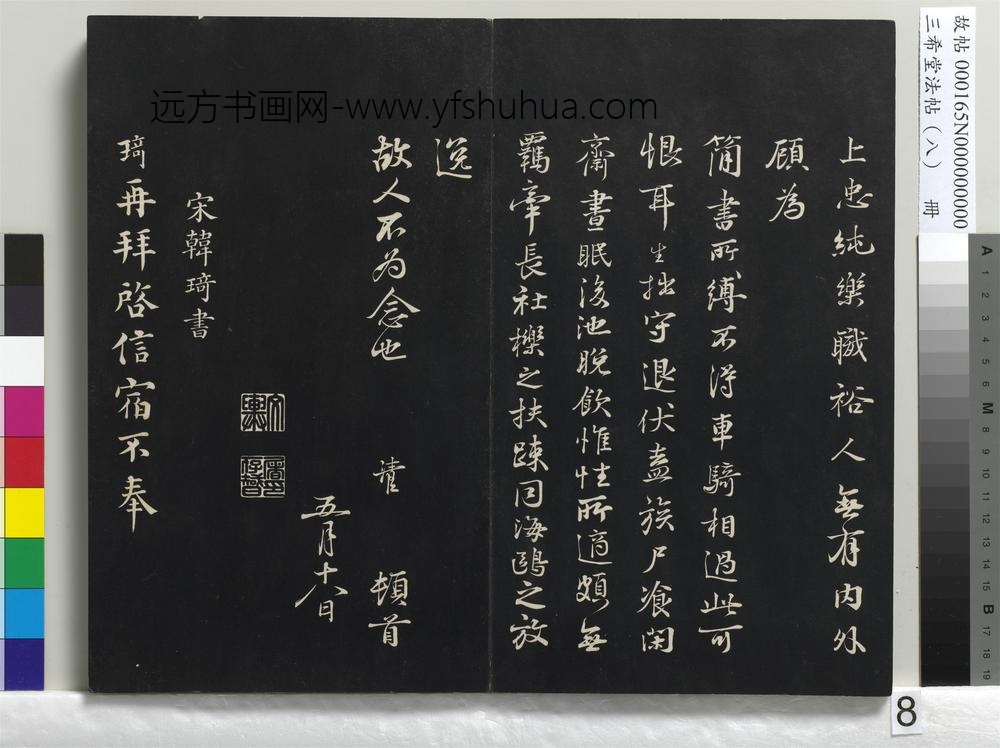 上忠純樂職裕人無有内外
顧為
簡書所縛不得車騎相過此可
恨耳生拙守退伏盍族尸飡閑
齋晝眠後池晚飲惟性所適頗無
羈牽長社櫟之扶踈同海鷗之放
逸
故人不為念也 頓首
五月十八日
宋韓琦書
琦再拜啓信宿不奉
远方书画网-www.yfshuhua.com
故帖 000165N000000000
三希堂法帖（八） 冊
8
A 1 2 3 4 5 6 M 8 9 10 11 12 13 14 15 B 17 18 19